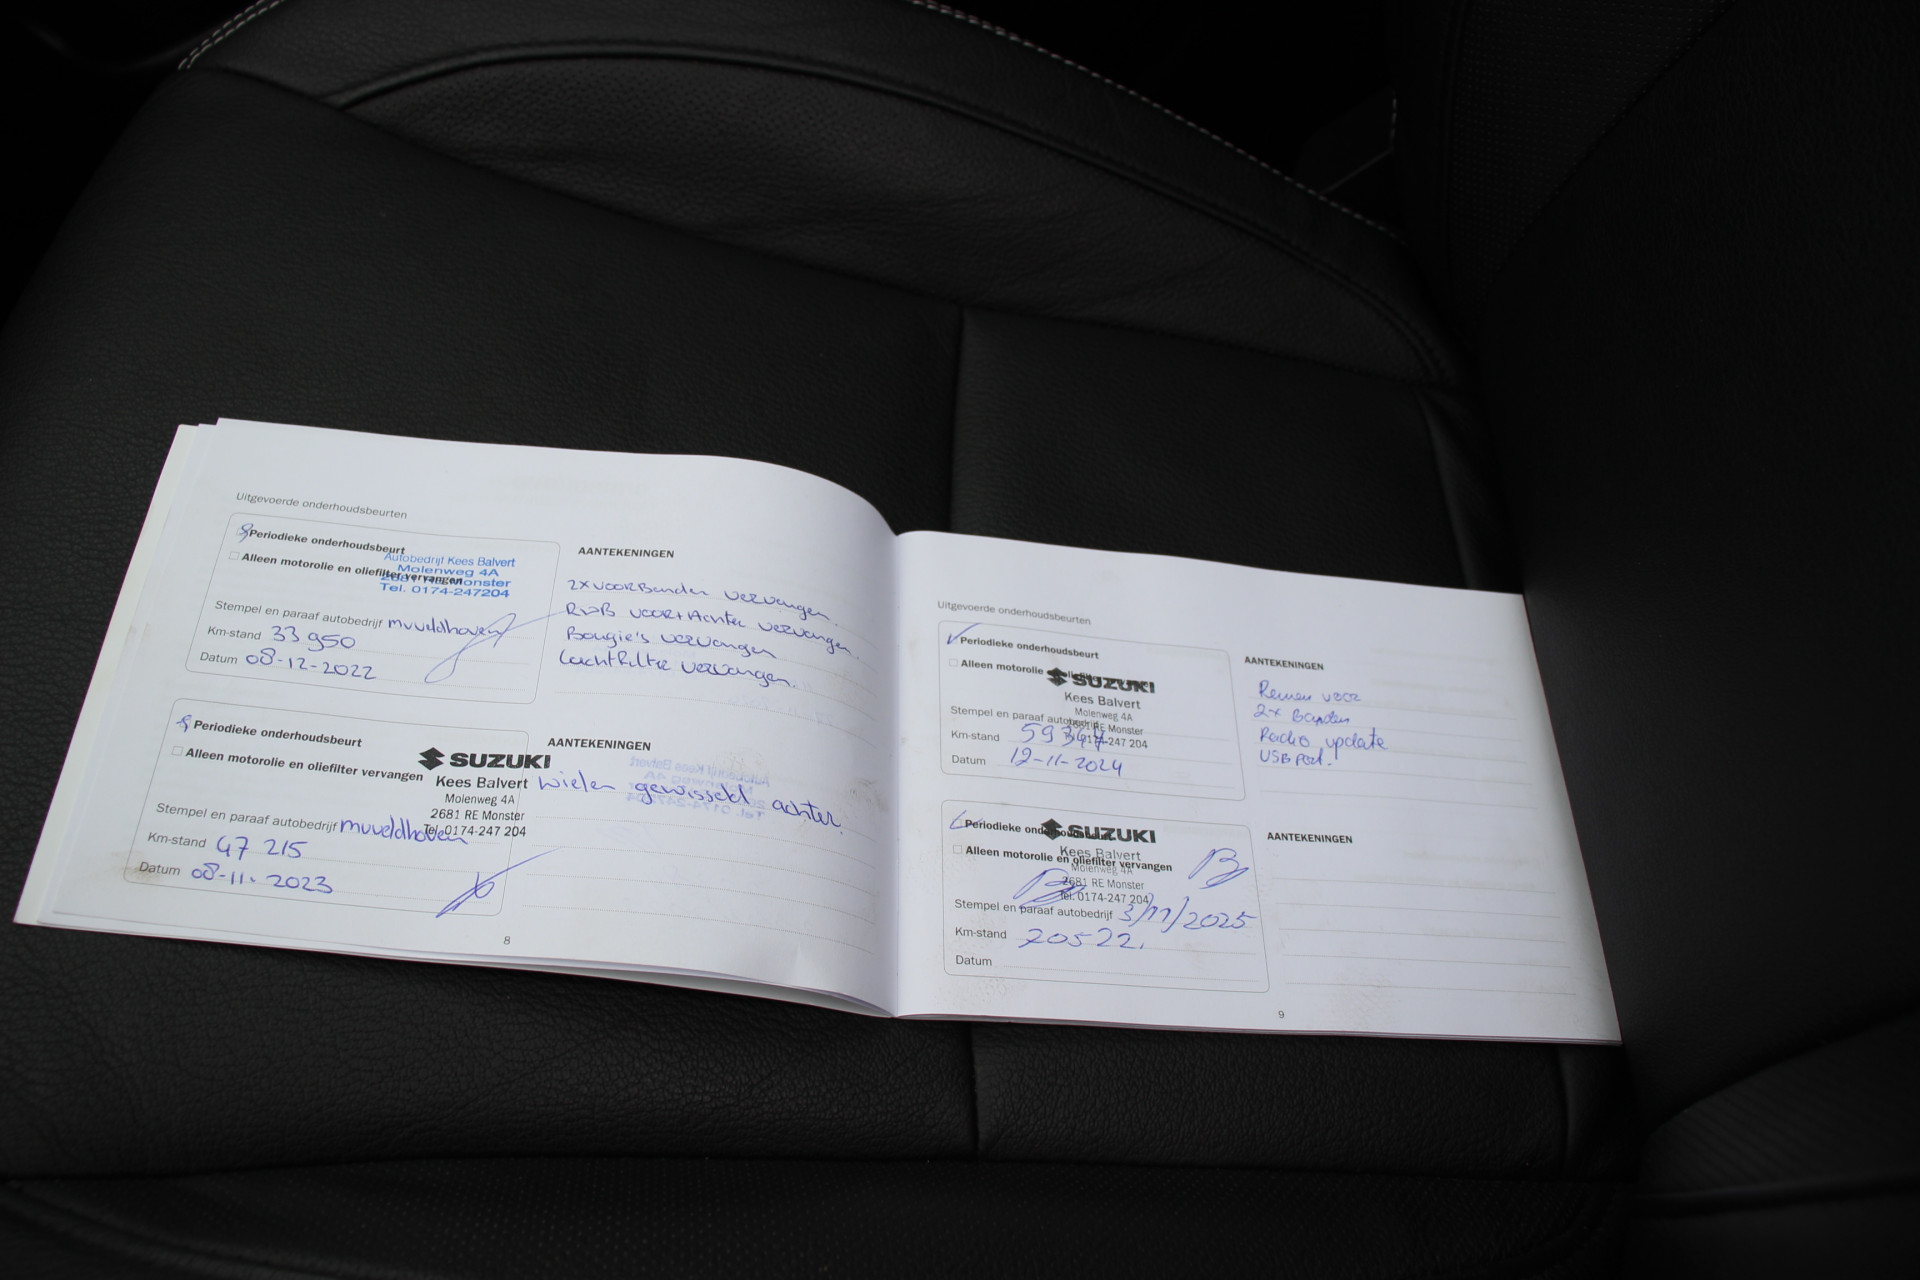 Uitgevoerde onderhoudsbeurten
Periodieke onderhoudsbeurt
Autobedrijf Kees Balvert
Alleen motorolie en oliefilter vervangen
Molenweg 4A
2681 RE Monster
Tel. 0174-247204
Stempel en paraaf autobedrijf muveldhoven
Km-stand 33 950
Datum 08-12-2022
AANTEKENINGEN
2x voorBanden vervangen.
voor+Achter vervangen.
Bougie's vervangen
Luchtfilter vervangen.
Periodieke onderhoudsbeurt
Alleen motorolie en oliefilter vervangen
SUZUKI
Kees Balvert
Molenweg 4A
2681 RE Monster
Tel. 0174-247 204
Stempel en paraaf autobedrijf muveldhoven
Km-stand 47 215
Datum 08-11-2023
AANTEKENINGEN
wielen gewisseld achter.
8
Uitgevoerde onderhoudsbeurten
Periodieke onderhoudsbeurt
Alleen motorolie
SUZUKI
Kees Balvert
Molenweg 4A
2681 RE Monster
0174-247 204
Stempel en paraaf autobedrijf
Km-stand 59347
Datum 12-11-2024
AANTEKENINGEN
Remmen voor
2x Banden
Radio update
USB Port.
Periodieke onderhoudsbeurt
SUZUKI
Kees Balvert
Alleen motorolie en oliefilter vervangen
Molenweg 4A
2681 RE Monster
Tel. 0174-247 204
Stempel en paraaf autobedrijf 3/11/2025
Km-stand 70522.
Datum
AANTEKENINGEN
9